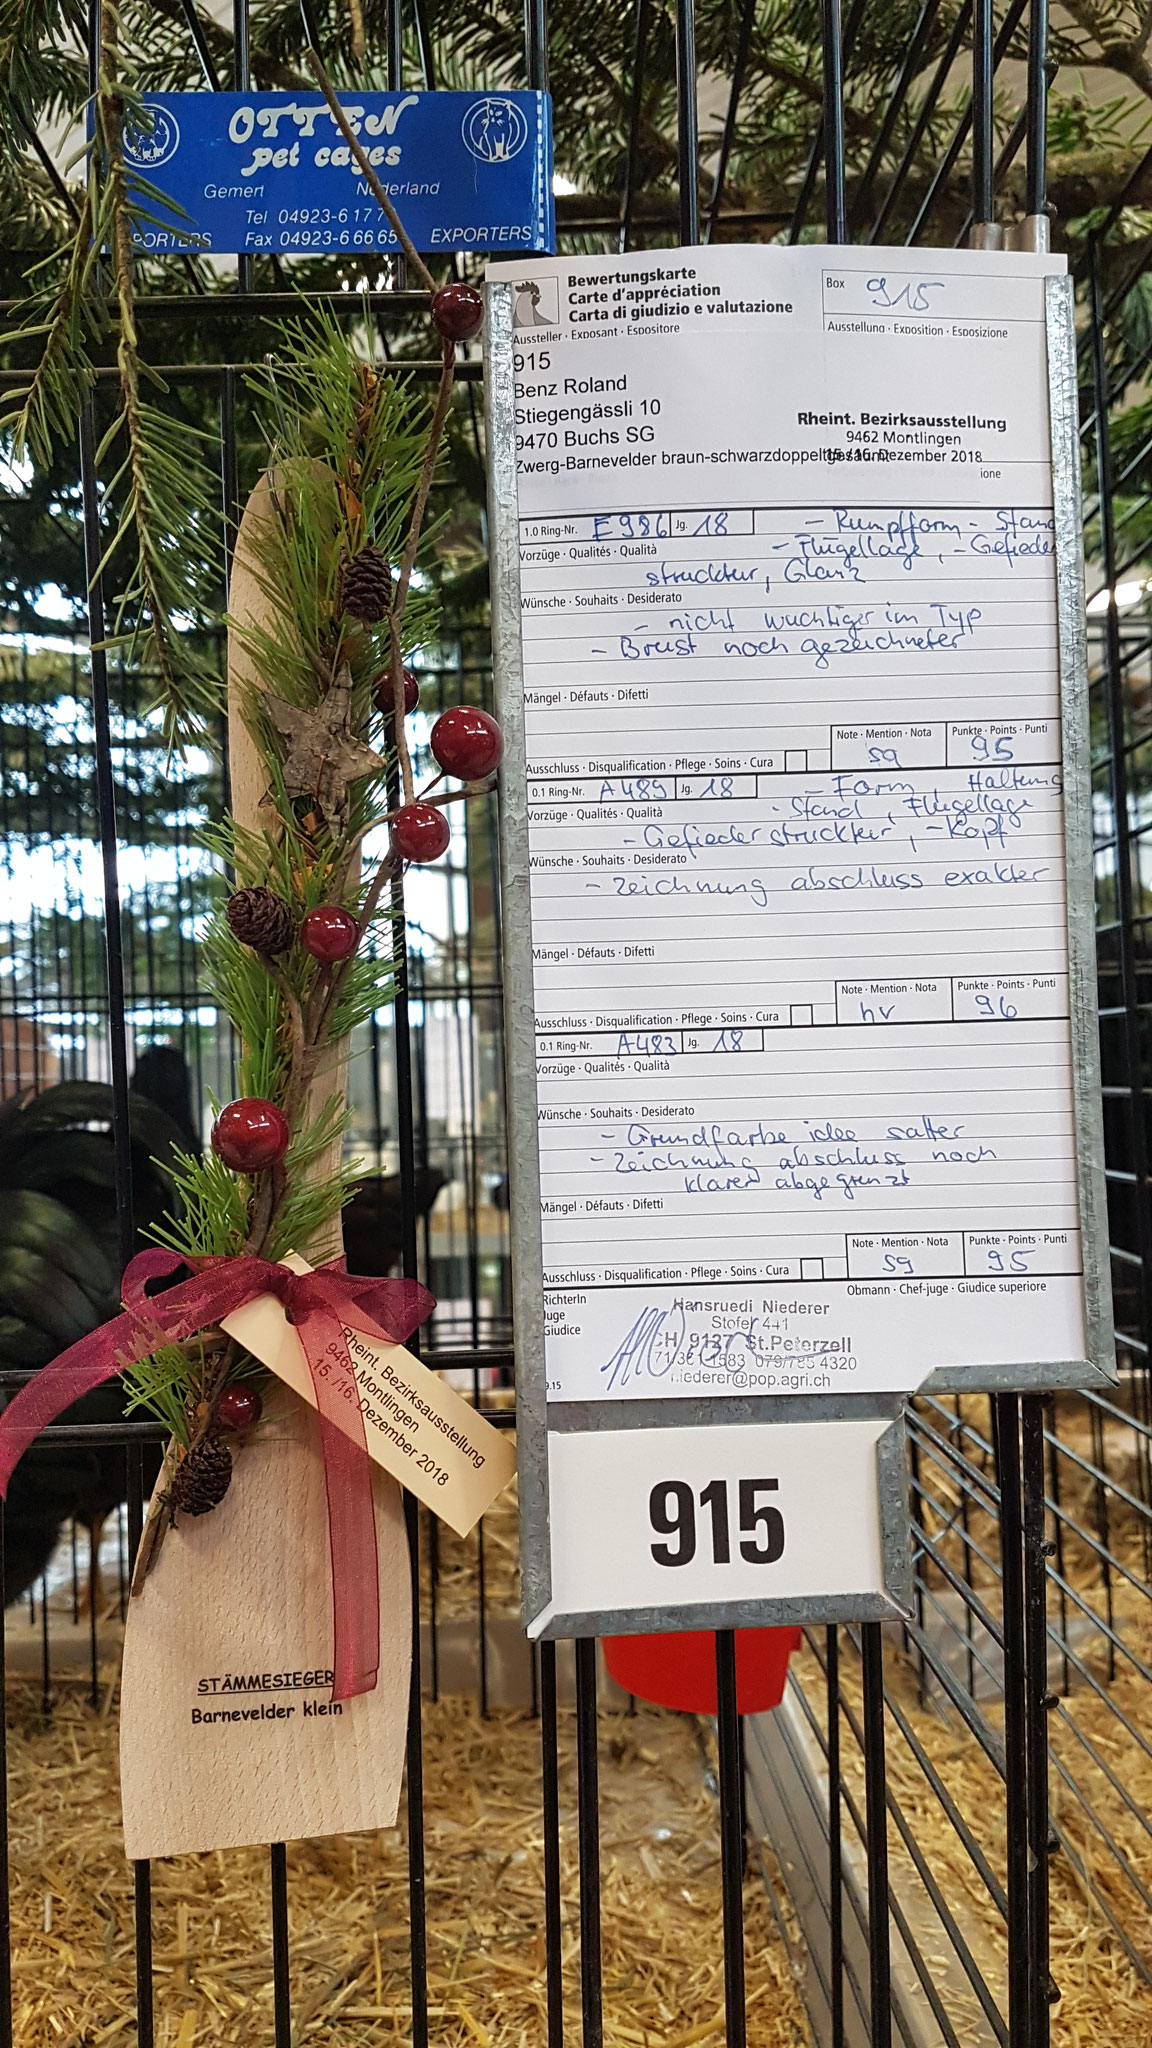 OTTEN
pet cages
Gemert Nederland
Tel 04923-6 17 7
PORTERS Fax 04923-6 66 65 EXPORTERS
Bewertungskarte
Carte d'appréciation
Carta di giudizio e valutazione
Box 915
Aussteller · Exposant · Espositore
Ausstellung · Exposition · Esposizione
915
Benz Roland
Stiegengässli 10
9470 Buchs SG
Rheint. Bezirksausstellung
9462 Montlingen
Zwerg-Barnevelder braun-schwarzdoppeltgesäumt
15./16. Dezember 2018
ione
1.0 Ring-Nr. E986 Jg. 18 - Rumpfform - Stand
Vorzüge · Qualités · Qualità - Flügellage, - Gefieder
struktur, Glanz
Wünsche · Souhaits · Desiderato
- nicht wuchtiger im Typ
- Brust noch gezeichneter
Mängel · Défauts · Difetti
Note · Mention · Nota Punkte · Points · Punti
sg 95
Ausschluss · Disqualification · Pflege · Soins · Cura
0.1 Ring-Nr. A489 Jg. 18 - Form, Haltung
Vorzüge · Qualités · Qualità - Stand, Flügellage
- Gefieder struktur, - Kopf
Wünsche · Souhaits · Desiderato
- Zeichnung abschluss exakter
Mängel · Défauts · Difetti
Note · Mention · Nota Punkte · Points · Punti
hv 96
Ausschluss · Disqualification · Pflege · Soins · Cura
0.1 Ring-Nr. A483 Jg. 18
Vorzüge · Qualités · Qualità
Wünsche · Souhaits · Desiderato
- Grundfarbe idee satter
- Zeichnung abschluss noch
klarer abgegrenzt
Mängel · Défauts · Difetti
Note · Mention · Nota Punkte · Points · Punti
sg 95
Ausschluss · Disqualification · Pflege · Soins · Cura
Obmann · Chef-juge · Giudice superiore
RichterIn
Juge
Giudice
Hansruedi Niederer
Stofel 441
CH 9127 St.Peterzell
71/361 1583 079/785 4320
niederer@pop.agri.ch
9.15
915
Rheint. Bezirksausstellung
9462 Montlingen
15. /16. Dezember 2018
STÄMMESIEGER
Barnevelder klein